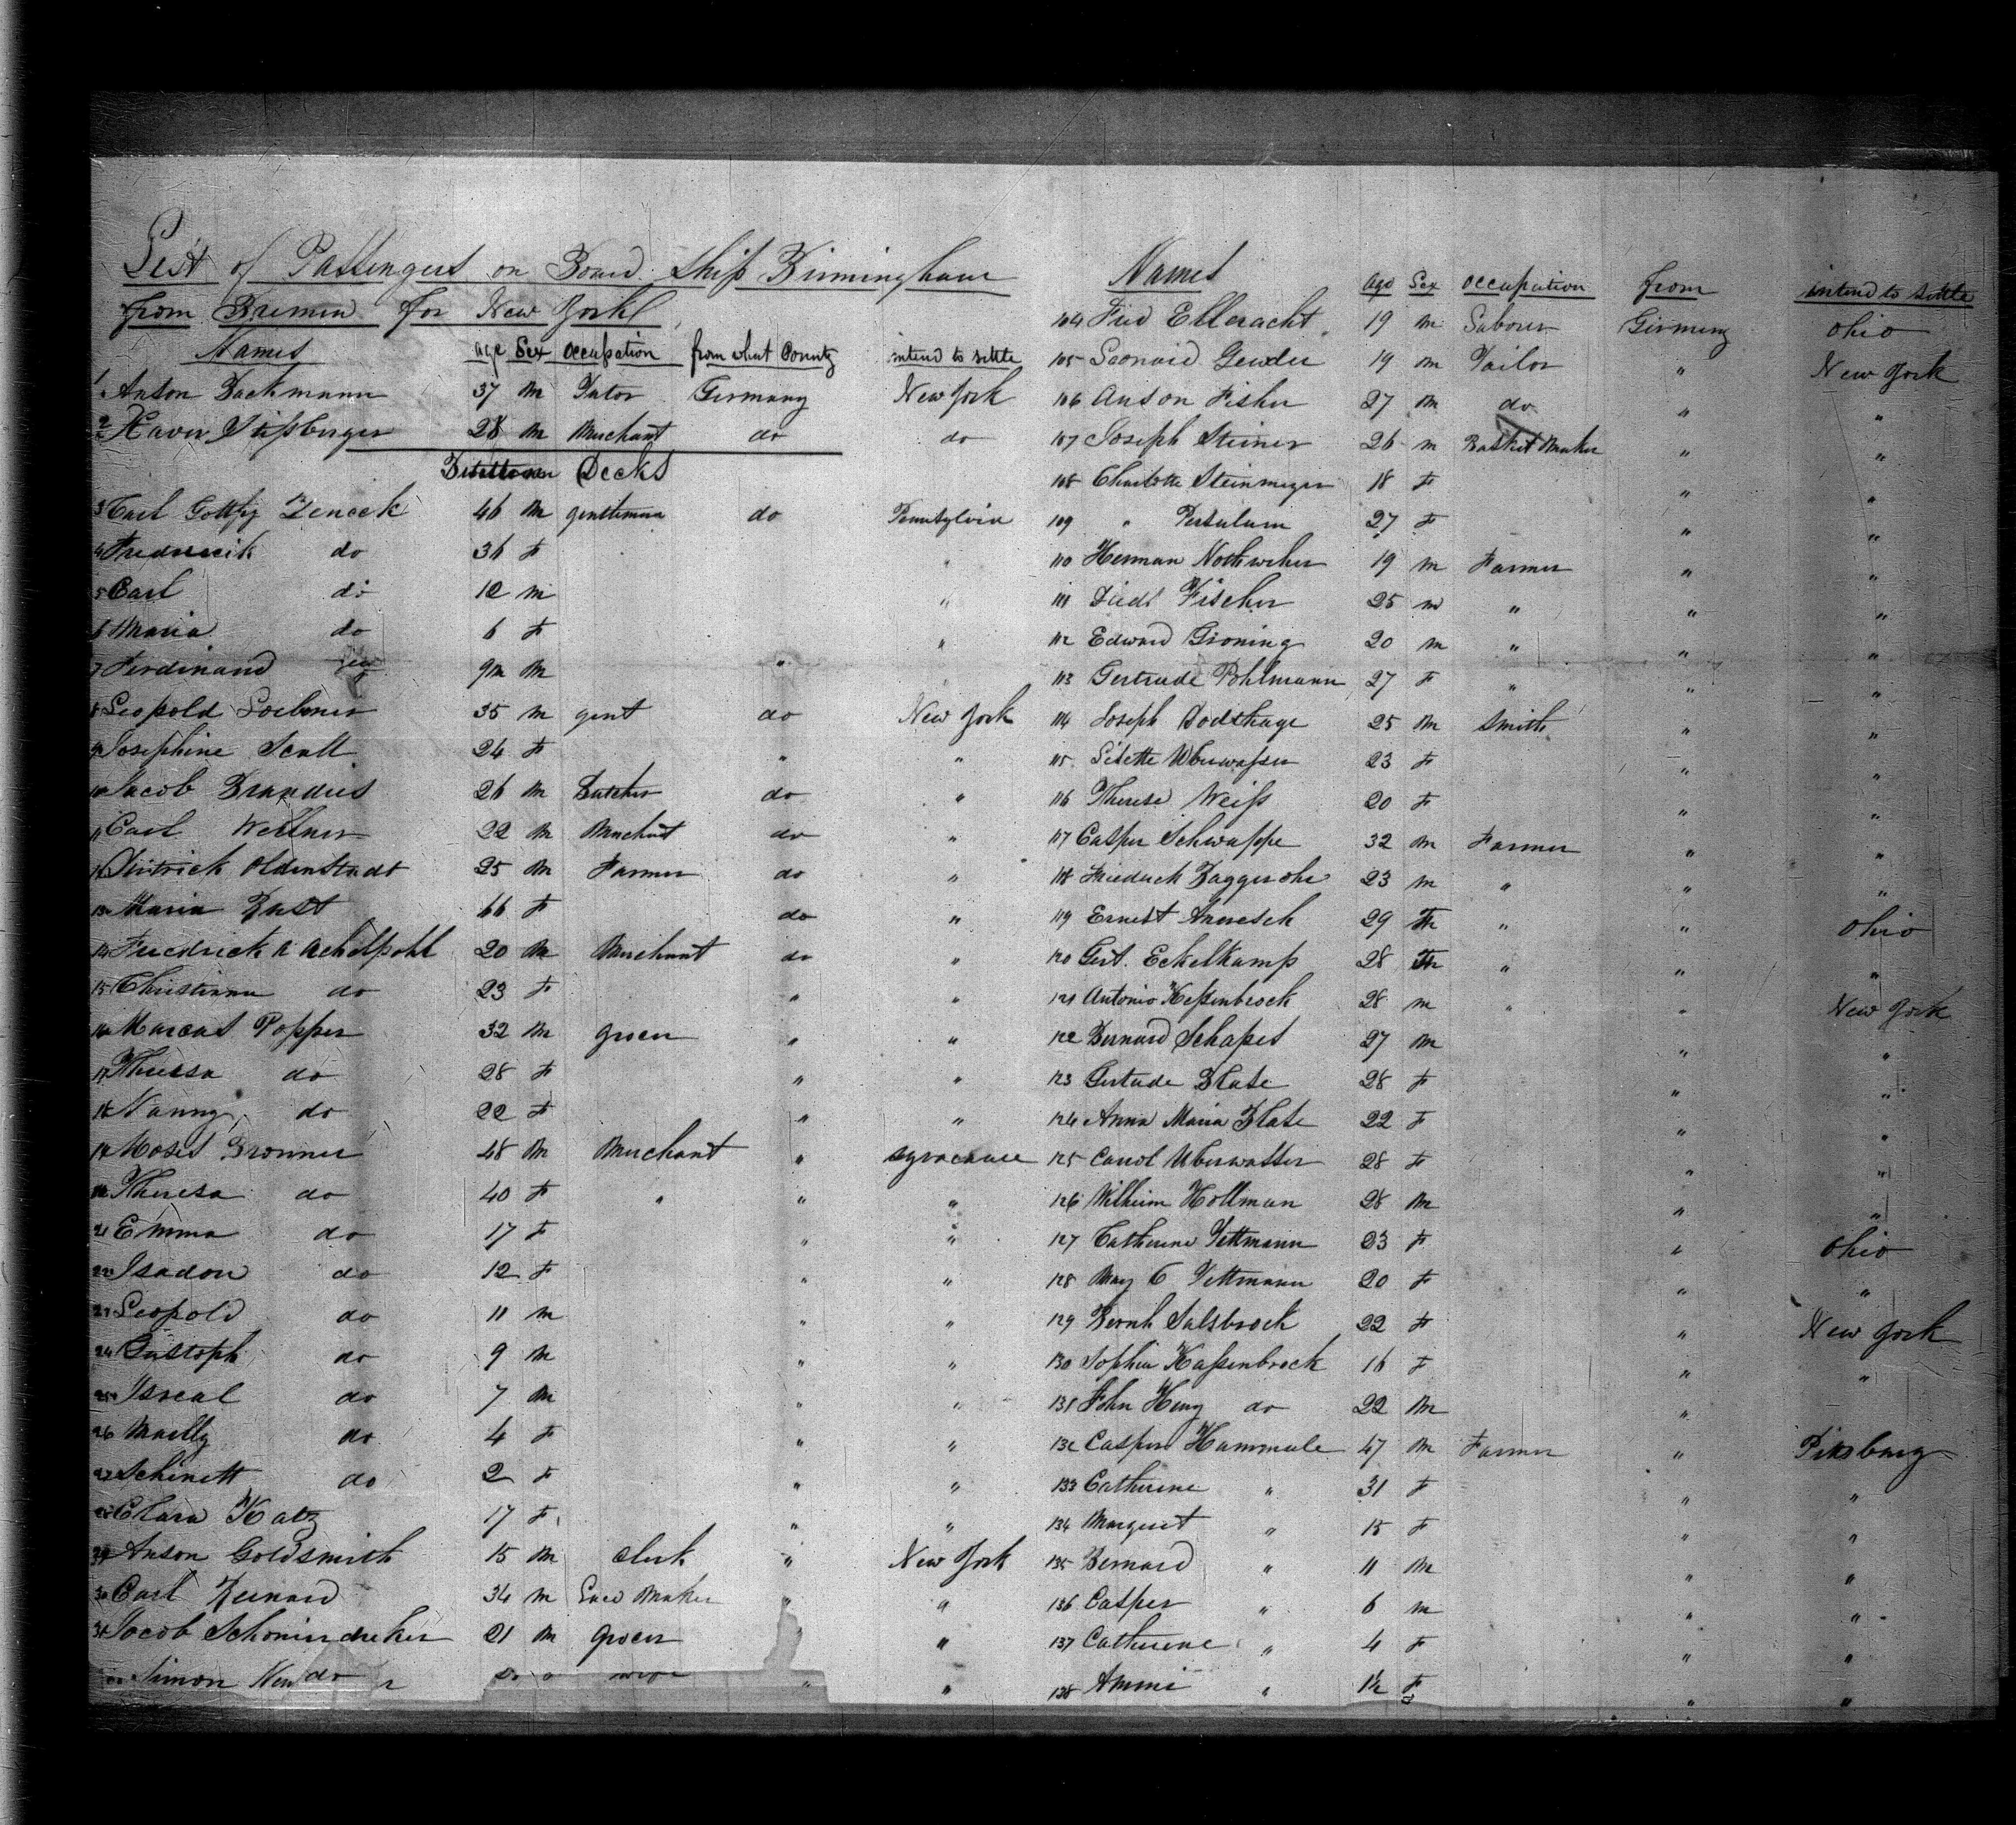 List of Passengers on Board Ship Birmingham
from Bremen for New York
Names age Sex occupation from what County intend to settle
1 Anton Backmann 37 M Germany New York
2 Xaver 28 M Merchant do do
Decks
3 Carl 46 M gentleman do
4 Frederick do 36 F "
5 Carl do 12 m "
6 Maria do 6 F "
7 Ferdinand 9m M "
8 Leopold 35 m gent do New York
9 Josephine Scall 24 F " "
10 Jacob Brandeis 26 M Butcher do "
11 Carl Wellner 22 M Merchant do "
12 Dietrick Oldenstadt 25 M Farmer do "
13 Maria Bast 66 F do "
14 Friedrick A Achelpohl 20 M Merchant do "
15 Christianna do 23 F " "
16 Marcus Popper 32 M grocer " "
17 Theresa do 28 F " "
18 Nanny do 22 F " "
19 Moses Bronner 48 M Merchant " Syracause
20 Theresa do 40 F " " "
21 Emma do 17 F " "
22 Isadon do 12 F " "
23 Leopold do 11 m " "
24 Gustoph do 9 M " "
25 Isreal do 7 M " "
26 Mailly do 4 F " "
27 Schinett do 2 F " "
28 Clara Katz 17 F " "
29 Anson Goldsmith 15 M Clerk " New York
30 Carl Bernard 34 m Lace Maker " "
31 Jacob 21 M grocer " "
Simon do " "
Names ago Sex occupation from intend to settle
104 Fred Elleracht 19 m Laborer Germany Ohio
105 Leonard Gender 19 m Tailor " New York
106 Anson Fisher 27 m do " "
107 Joseph Steiner 26 m Basket Maker " "
108 Charlotte Steinmeyer 18 F " "
109 " 27 F " "
110 Herman 19 m Farmer " "
111 Fischer 25 m " " "
112 Edward Groning 20 m " " "
113 Gertrude Pohlmann 27 F " " "
114 Joseph Dodthage 25 M Smith " "
115 Lisette Uberwasser 23 F " "
116 Therese Weiss 20 F " "
117 Casper Schwappe 32 m Farmer " "
118 Friedrich 23 m " " "
119 Ernest 29 " " Ohio
120 Gert. Eckelkamp 28 " " "
121 Antonio Kessenbrock 28 m " " New York
122 Bernard Schapes 27 m " "
123 Gertude Blase 28 F " "
124 Anna Maria Blase 22 F " "
125 Carrol Uberwasser 28 F " "
126 Wilheim Hollman 28 M " "
127 Catherine Tettmann 23 F " Ohio
128 Mary C Tettmann 20 F " "
129 Bernh Salsbrock 22 F " New York
130 Sophia Kassenbrock 16 F " "
131 John Henry do 22 M "
132 Casper Hammale 47 M Farmer " Pitsburg
133 Catherine " 31 F " "
134 Margeret " 15 F " "
135 Bernard " 11 M " "
136 Casper " 6 m " "
137 Catherine " 4 F " "
138 " 1½ F " "